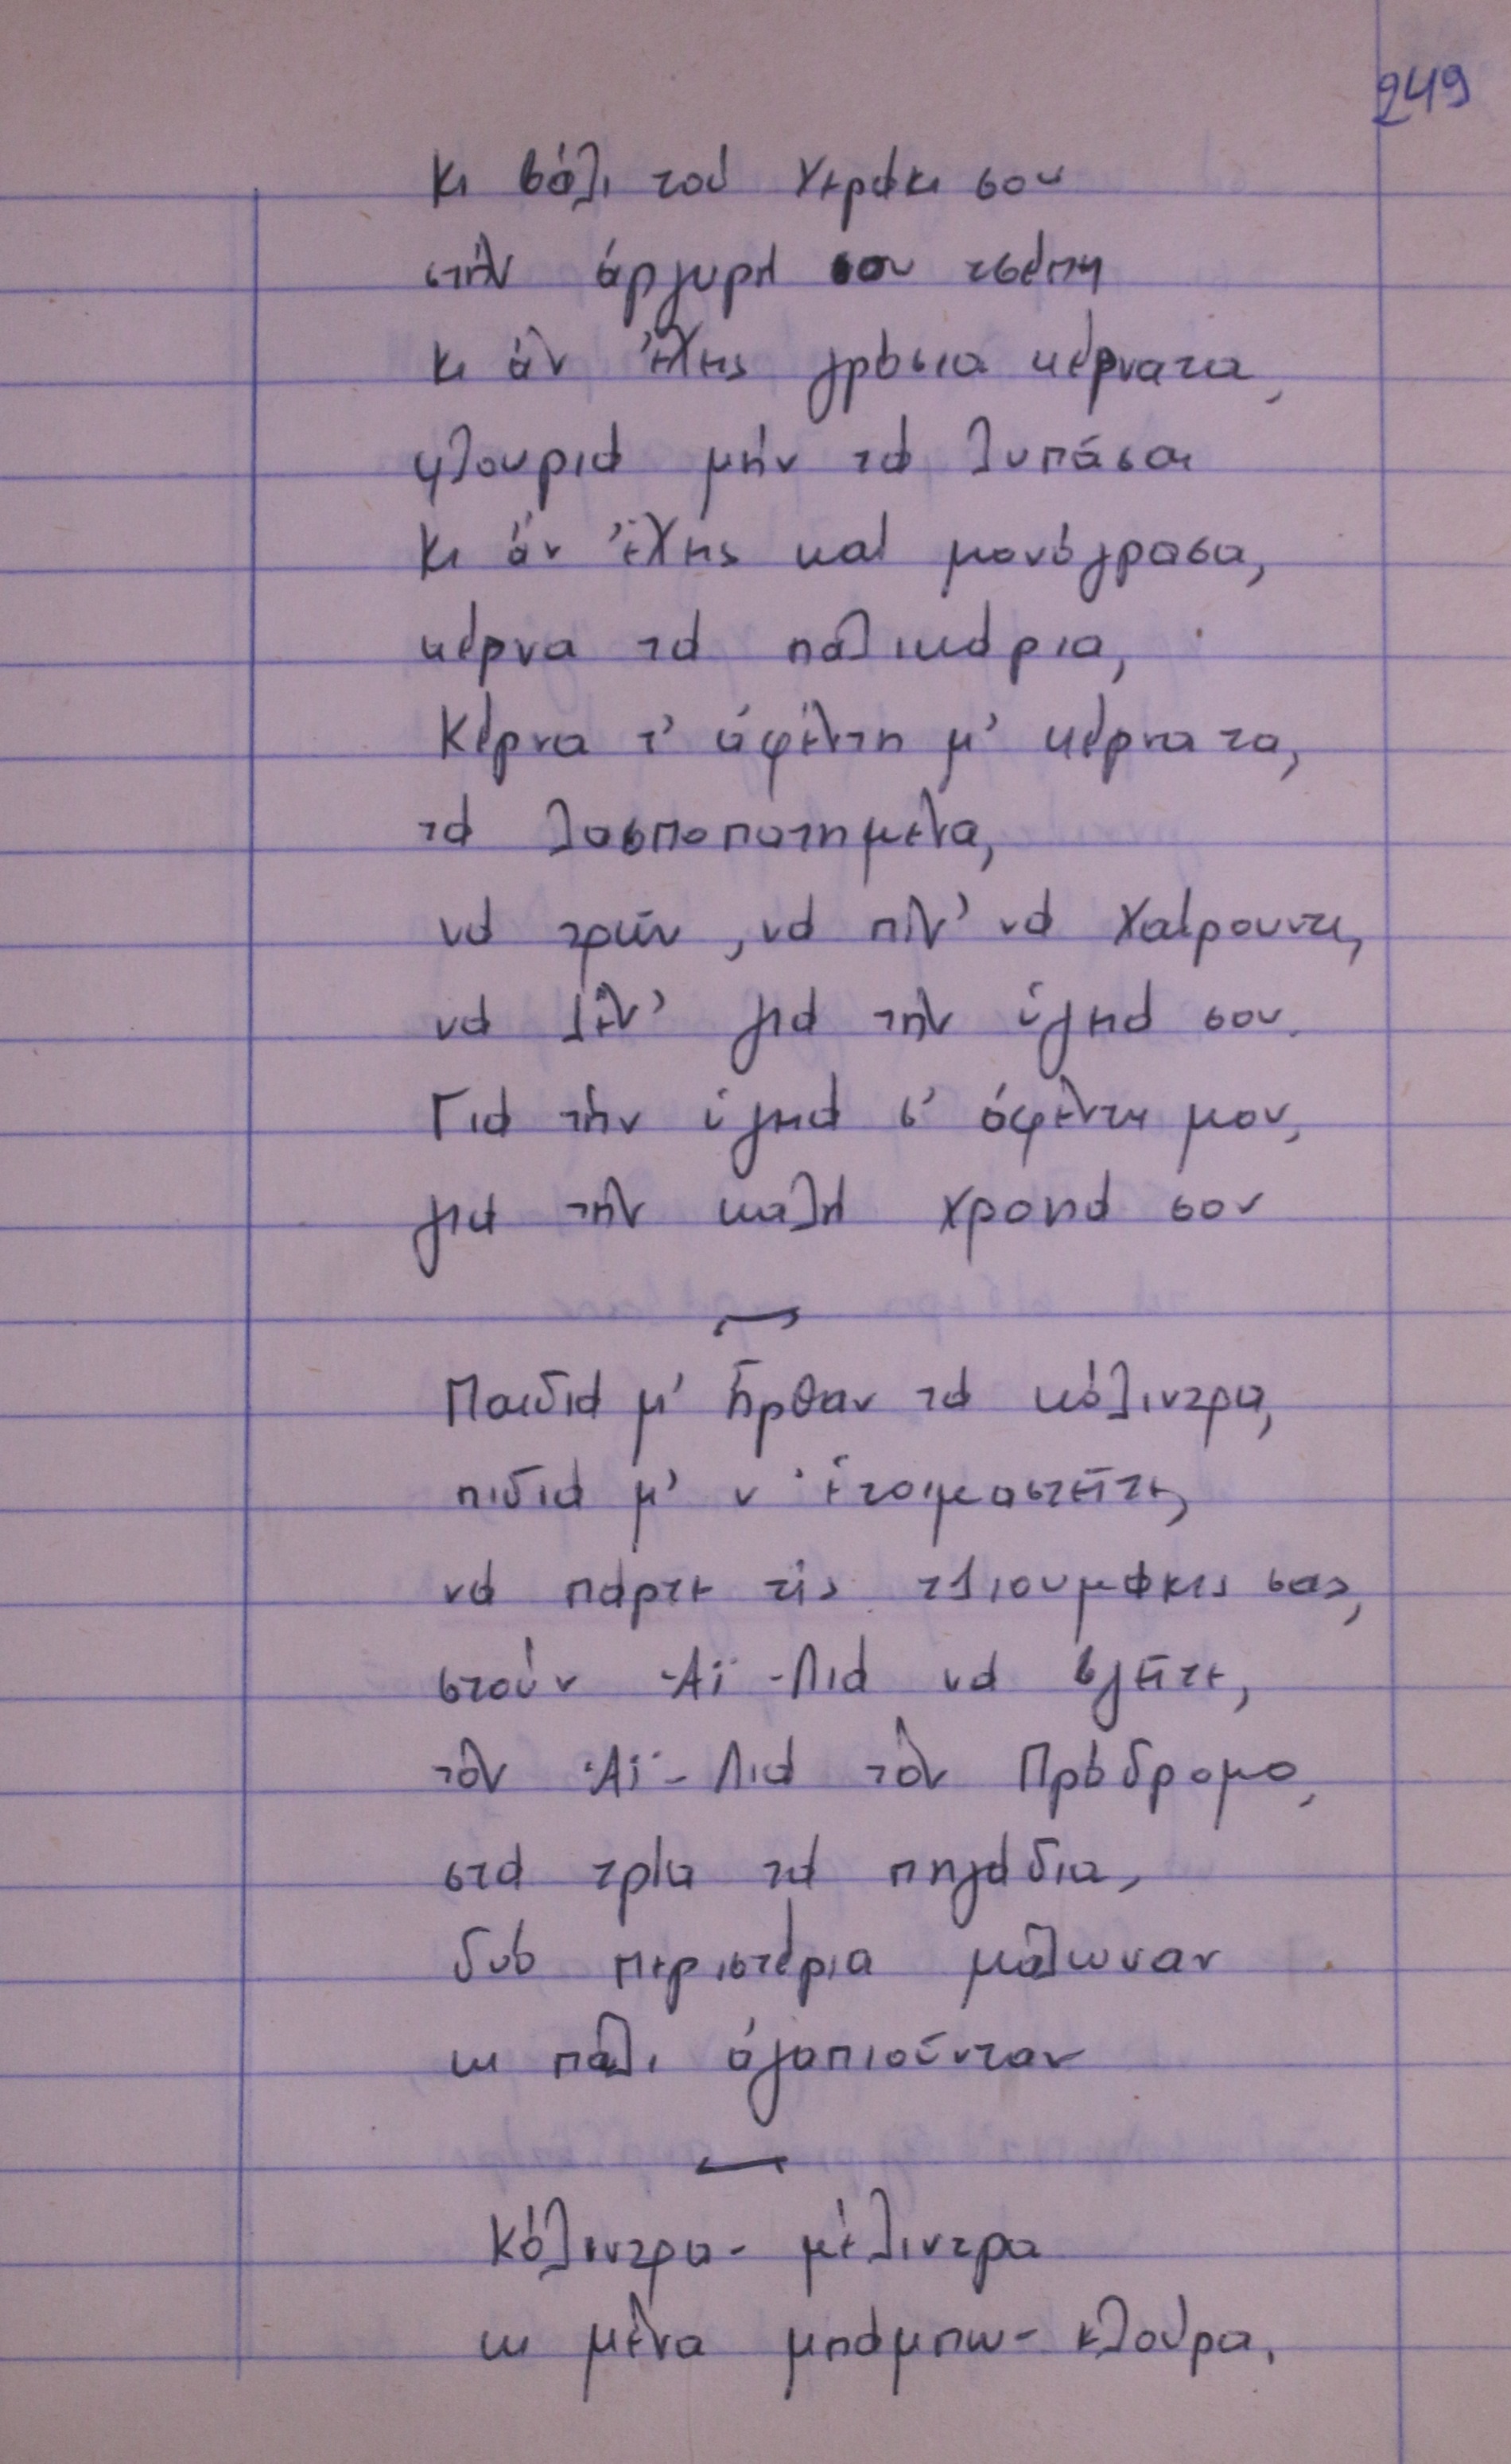 249
Κι βάλι τοὐ χεράκι σου
στὴν ἀργυρή σου τσέπη
κι ἄν ἔχεις γρόσια κέρνατα,
φλουριά μήν τά λυπᾶσαι
Κι ἄν ἔχεις καί μονόγρασα,
κέρνα τά παλικάρια,
Κέρνα τ' ἀφέντη μ' κέρνατα,
τά λασποπατημένα,
νά τρῶν, νά πίν' νά χαίρουντι,
νά λέν' γιά τὴν ὑγειά σου.
Γιά τὴν ὑγειά σ' ἀφέντη μου,
γιά τὴν καλή χρονιά σου
Παιδιά μ' ἦρθαν τά κόλιντρα,
πιδιά μ' ν' ἑτοιμαστεῖτε,
νά πάρτε τίς τζιουμάκες σας,
στούν Ἀϊ-Λιά νά βγεῖτε,
τὸν Ἀϊ-Λιά τὸν Πρόδρομο,
στά τρία τά πηγάδια,
δυό περιστέρια μάλωναν
κι πάλι ἀγαπιοῦνταν
Κόλιντρα - μέλιντρα
κι μένα μπάμπω - κλούρα.